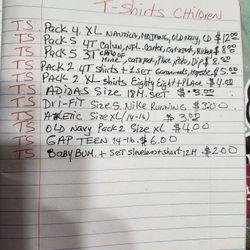 T-shirts CHILDREN
TS Pack 4. XL NAUTICA, MUSTANG, OLD NAVY, CD $12.00
TS Pack 5 4T Calvin, NFL. Carter, cat & jack, $8.00
TS Pack 5 3T
TS Mine, cat & jack, Place, Polo Dip $8.00
TS Pack 2 4T Shirts + 1 SET Garanimals, $5.00
TS Pack 2 XL shirts Eighty Eight + PLACE $4.00
TS ADIDAS Size 18M. SET $5.00
TS Dri-FiT Size 5. Nike RUNNING $3.00
TS AtLetic Size XL (14-16) $3.00
TS OLD Navy Pack 2 Size XL $4.00
TS GAP TEEN 14-16. $6.00
TS BABY BUM. + SET Sleveless + short 12M $2.00